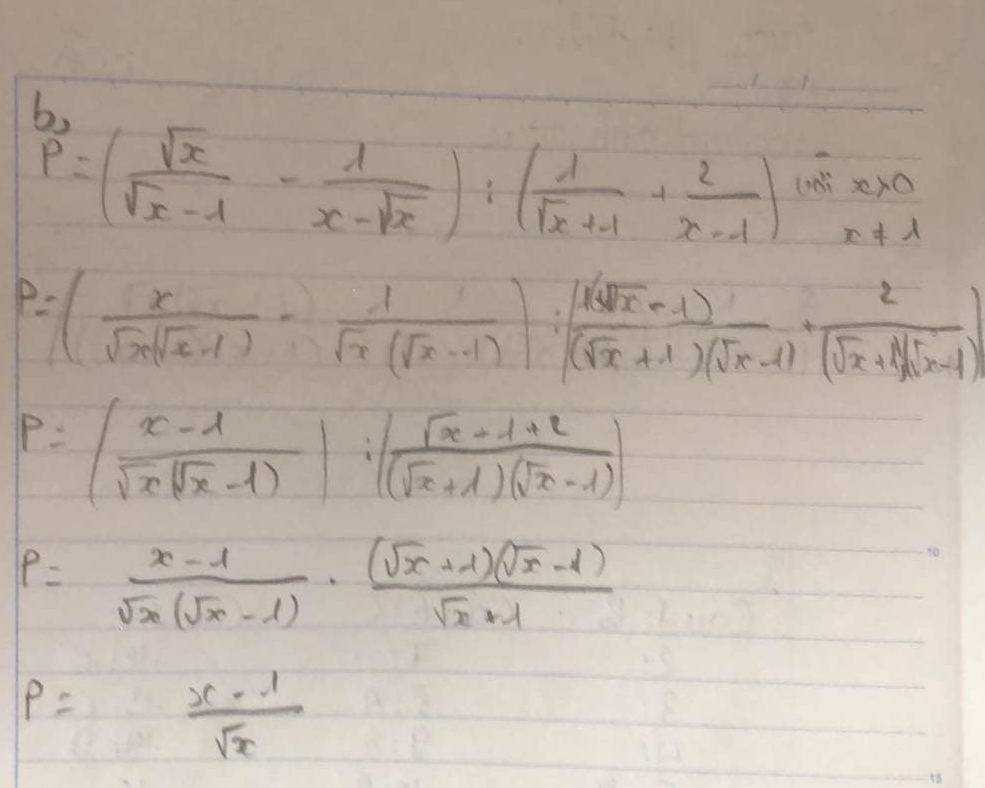 b,
P = (√x / (√x - 1) - 1 / (x - √x)) : (1 / (√x + 1) + 2 / (x - 1)) với x > 0
x ≠ 1
P = (x / (√x(√x - 1)) - 1 / (√x(√x - 1))) : (1(√x - 1) / ((√x + 1)(√x - 1)) + 2 / ((√x + 1)(√x - 1)))
P = ((x - 1) / (√x(√x - 1))) : ((√x + 1 + 2) / ((√x + 1)(√x - 1)))
P = (x - 1) / (√x(√x - 1)) . ((√x + 1)(√x - 1)) / (√x + 1)
10
P = (x - 1) / √x
15